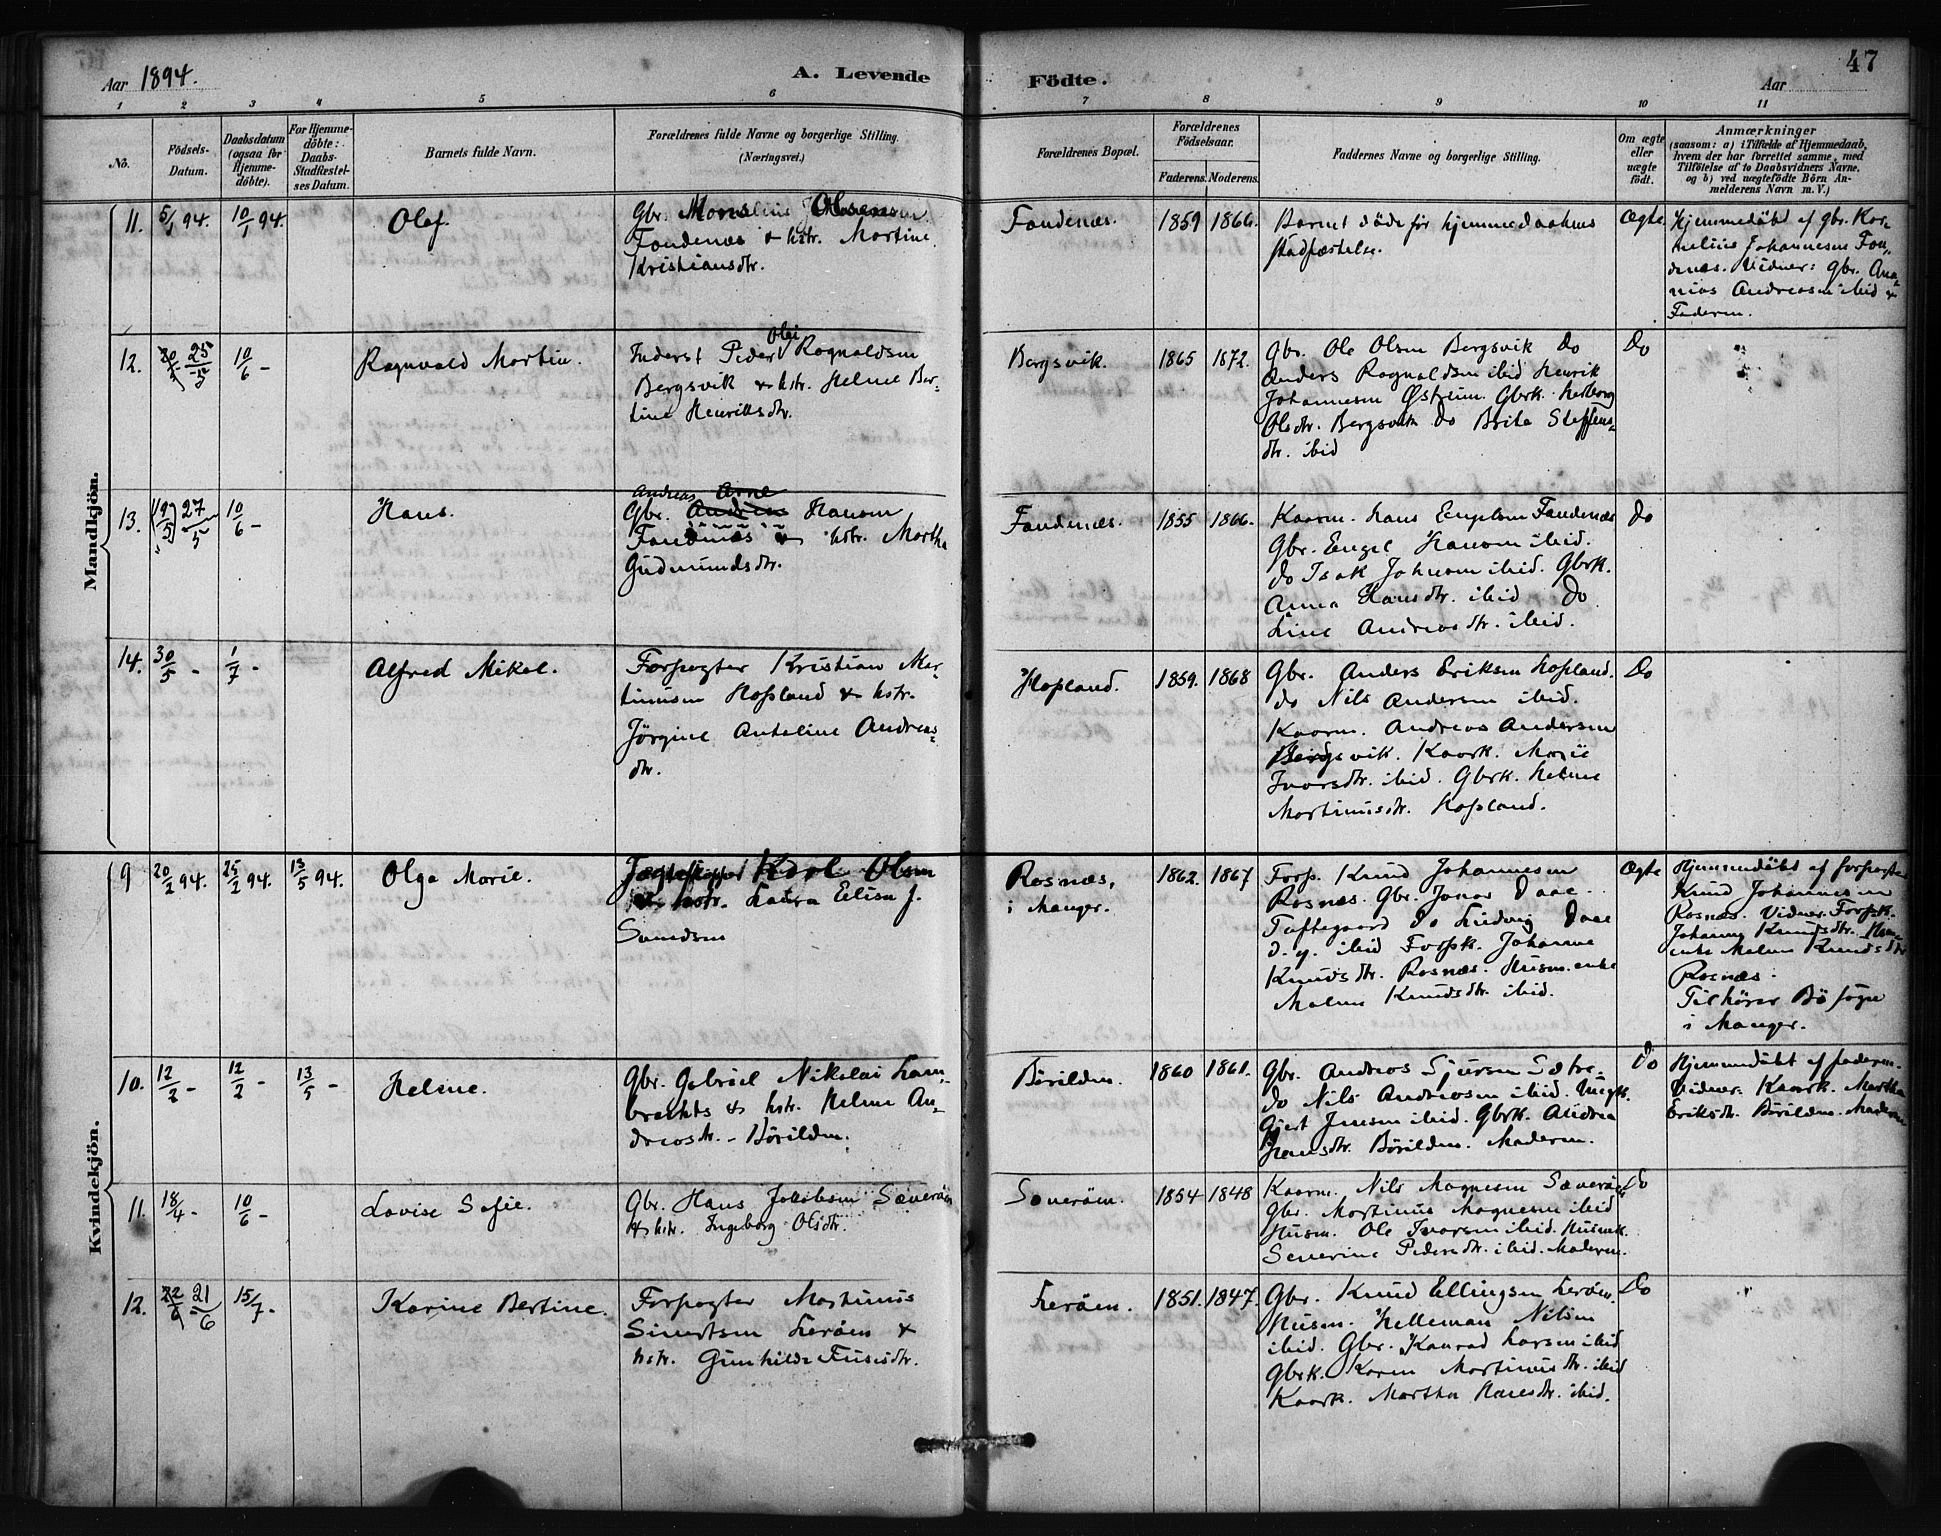 Aar 1894. A. Levende Födte. Aar 47
1 2 3 4 5 6 7 8 9 10 11
No.
Födsels-
Datum.
Daabsdatum
(ogsaa for
Hjemme-
döbte).
For Hjemme-
döbte:
Daabs-
Stadfæstel-
ses Datum.
Barnets fulde Navn.
Forældrenes fulde Navne og borgerlige Stilling.
(Næringsvei.)
Forældrenes Bopæl.
Forældrenes
Födselsaar.
Faderens. Moderens.
Faddernes Navne og borgerlige Stilling.
Om ægte
eller
uægte
födt.
Anmærkninger
(saasom: a) i Tilfælde af Hjemmedaab,
hvem der har forrettet samme, med
Tilföielse af to Daabsvidners Navne,
og b) ved uægtefödte Börn An-
melderens Navn m. V.)
Mandkjön.
11. 5/1 94. 10/1 94. Olaf.
Gbr. Olsen
Fondenæs & hstr. Martine
Kristiansdtr.
Fondenæs. 1859 1866.
Barnet döde för hjemmedaabens
stadfæstelse.
Ægte.
Hjemmedöbt af gbr. Kor-
nelius Johannesen Fon-
denæs. Vidner: gbr. Ana-
nias Andreasen ibid &
Faderen.
12. 25/5 10/6 - Ragnvald Martin.
Olai
Inderst Peder Ragnaldsen
Bergsvik & hstr. Helene Ber-
tine Henriksdtr.
Bergsvik. 1865 1872.
Gbr. Ole Olsen Bergsvik Do
Anders Ragnaldsen ibid Henrik
Johannesen Østreim. Gbrk.
Olsdtr. Bergsvik Do Brita Steffens-
dtr. ibid
Do
13. (19/5) 27/5 10/6 - Hans.
Andreas Arne
Gbr. Andreas Hansen
Fondenæs & hstr. Martha
Gudmundsdtr.
Fondenæs. 1855 1866.
Kaarm. Hans Engelsen Fondenæs
Gbr. Engel Hansen ibid.
do Isak Johnsen ibid. Gbrk.
Anna Hansdtr. ibid Do
Line Andreasdtr. ibid.
Do
14. 30/5 - 1/7 - Alfred Mikal.
Forpagter Kristian Mar-
tinusen Hopland & hstr.
Jörgine Antoline Andreas-
dtr.
Hopland. 1859. 1868
Gbr. Anders Eriksen Hopland.
do Nils Andersen ibid.
Kaarm. Andreas Andersen
Bergsvik. Kaark. Marie
Ivarsdtr. ibid. Gbrk. Helene
Martinusdtr. Hopland.
Do
Kvindekjön.
9 20/2 94. 25/2 94. 13/5 94. Olga Marie.
Karl Olsen
& hstr. Laura Elisa f.
Samdsen
Rosnæs,
i Manger.
1862. 1867
Forp. Knud Johannesen
Rosnæs. Gbr. Jonas Daae
Toftegaard do Ludvig Daae
d. y. ibid Forpk. Johanne
Knudsdtr. Rosnæs. Husm.enke
Malene Knudsdtr. ibid.
Ægte
Hjemmedöbt af forpagter
Knud Johannesen
Rosnæs. Vidner. Forpk.
Johanne Knudsdtr. Hm.-
enke Malene Knudsdtr
Rosnæs.
Tilhörer Bö sogn
i Manger.
10. 12/2 - 12/2 - 13/5 - Helene.
Gbr. Gabriel Nikolai Lam-
brechts & hstr. Helene An-
dreasdtr. - Börilden.
Börilden. 1860 1861.
Gbr. Andreas Sjursen Sætre-
do Nils Andreasen ibid. Ungk.
Gjert Jensen ibid. Gbrk. Andrea
Hansdtr. Börilden. Moderen.
Do
Hjemmedöbt af faderen.
Vidner. Kaark. Martha
Eriksdtr. Börilden. Moderen
11. 18/4 - 10/6 - Lovise Sofie.
Gbr. Hans Jakobsen Sæveröen
& hstr. Ingeborg Olsdtr.
Sæveröen. 1854 1848
Kaarm. Nils Magnesen Sæveröen
Gbr. Martinus Magnesen ibid
Husm. Ole Ivarsen ibid. Husmk.
Severine Pedersdtr. ibid. Moderen.
Do
12. 21/6 15/7 - Karine Bertine.
Forpagter Martinus
Sivertsen Leröen &
hstr. Gunhilde Fusesdtr.
Leröen. 1851. 1847.
Gbr. Knud Ellingsen Leröen.
Husm. Helleman Nilsen
ibid. Gbr. Konrad Larsen ibid
Gbrk. Karen Martinusdtr. ibid
Kaark. Martha Hansdtr. ibid.
Do